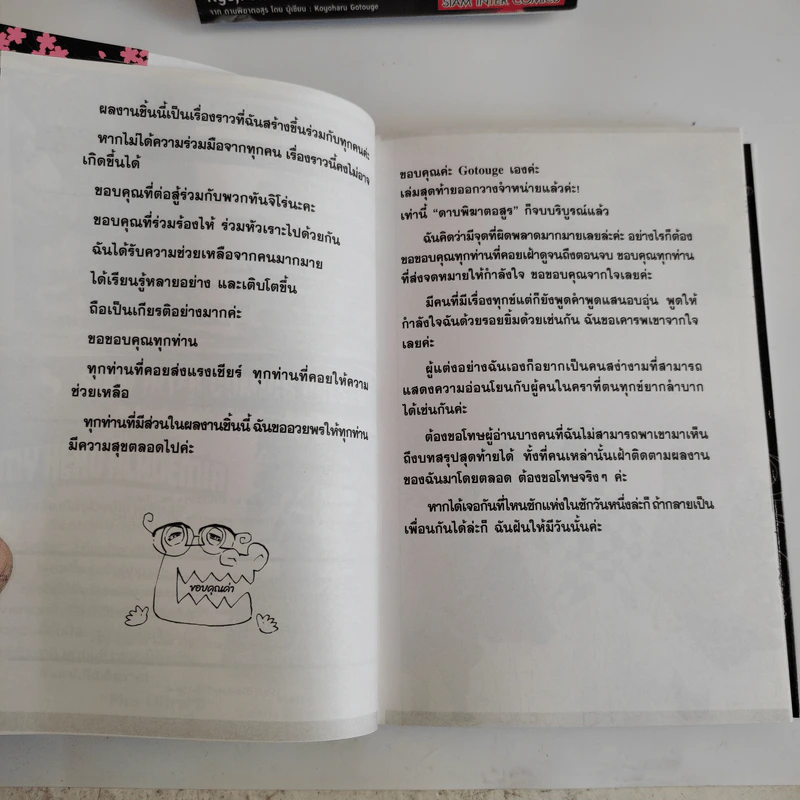 จาก ดาบพิฆาตอสูร โดย ผู้เขียน : Koyoharu Gotouge
SIAM INTER COMICS
ผลงานชิ้นนี้เป็นเรื่องราวที่ฉันสร้างขึ้นร่วมกับทุกคนค่ะ
หากไม่ได้ความร่วมมือจากทุกคน เรื่องราวนี้คงไม่อาจ
เกิดขึ้นได้
ขอบคุณที่ต่อสู้ร่วมกับพวกทันจิโร่นะคะ
ขอบคุณที่ร่วมร้องไห้ ร่วมหัวเราะไปด้วยกัน
ฉันได้รับความช่วยเหลือจากคนมากมาย
ได้เรียนรู้หลายอย่าง และเติบโตขึ้น
ถือเป็นเกียรติอย่างมากค่ะ
ขอขอบคุณทุกท่าน
ทุกท่านที่คอยส่งแรงเชียร์ ทุกท่านที่คอยให้ความ
ช่วยเหลือ
ทุกท่านที่มีส่วนในผลงานชิ้นนี้ ฉันขออวยพรให้ทุกท่าน
มีความสุขตลอดไปค่ะ
ขอบคุณค่า
ขอบคุณค่ะ Gotouge เองค่ะ
เล่มสุดท้ายออกวางจำหน่ายแล้วค่ะ!
เท่านี้ “ดาบพิฆาตอสูร” ก็จบบริบูรณ์แล้ว
ฉันคิดว่ามีจุดที่ผิดพลาดมากมายเลยล่ะค่ะ อย่างไรก็ต้อง
ขอขอบคุณทุกท่านที่คอยเฝ้าดูจนถึงตอนจบ ขอบคุณทุกท่าน
ที่ส่งจดหมายให้กำลังใจ ขอขอบคุณจากใจเลยค่ะ
มีคนที่มีเรื่องทุกข์แต่ก็ยังพูดคำพูดแสนอบอุ่น พูดให้
กำลังใจฉันด้วยรอยยิ้มด้วยเช่นกัน ฉันขอเคารพเขาจากใจ
เลยค่ะ
ผู้แต่งอย่างฉันเองก็อยากเป็นคนสง่างามที่สามารถ
แสดงความอ่อนโยนกับผู้คนในคราที่ตนทุกข์ยากลำบาก
ได้เช่นกันค่ะ
ต้องขอโทษผู้อ่านบางคนที่ฉันไม่สามารถพาเขามาเห็น
ถึงบทสรุปสุดท้ายได้ ทั้งที่คนเหล่านั้นเฝ้าติดตามผลงาน
ของฉันมาโดยตลอด ต้องขอโทษจริงๆ ค่ะ
หากได้เจอกันที่ไหนซักแห่งในซักวันหนึ่งล่ะก็ ถ้ากลายเป็น
เพื่อนกันได้ล่ะก็ ฉันฝันให้มีวันนั้นค่ะ